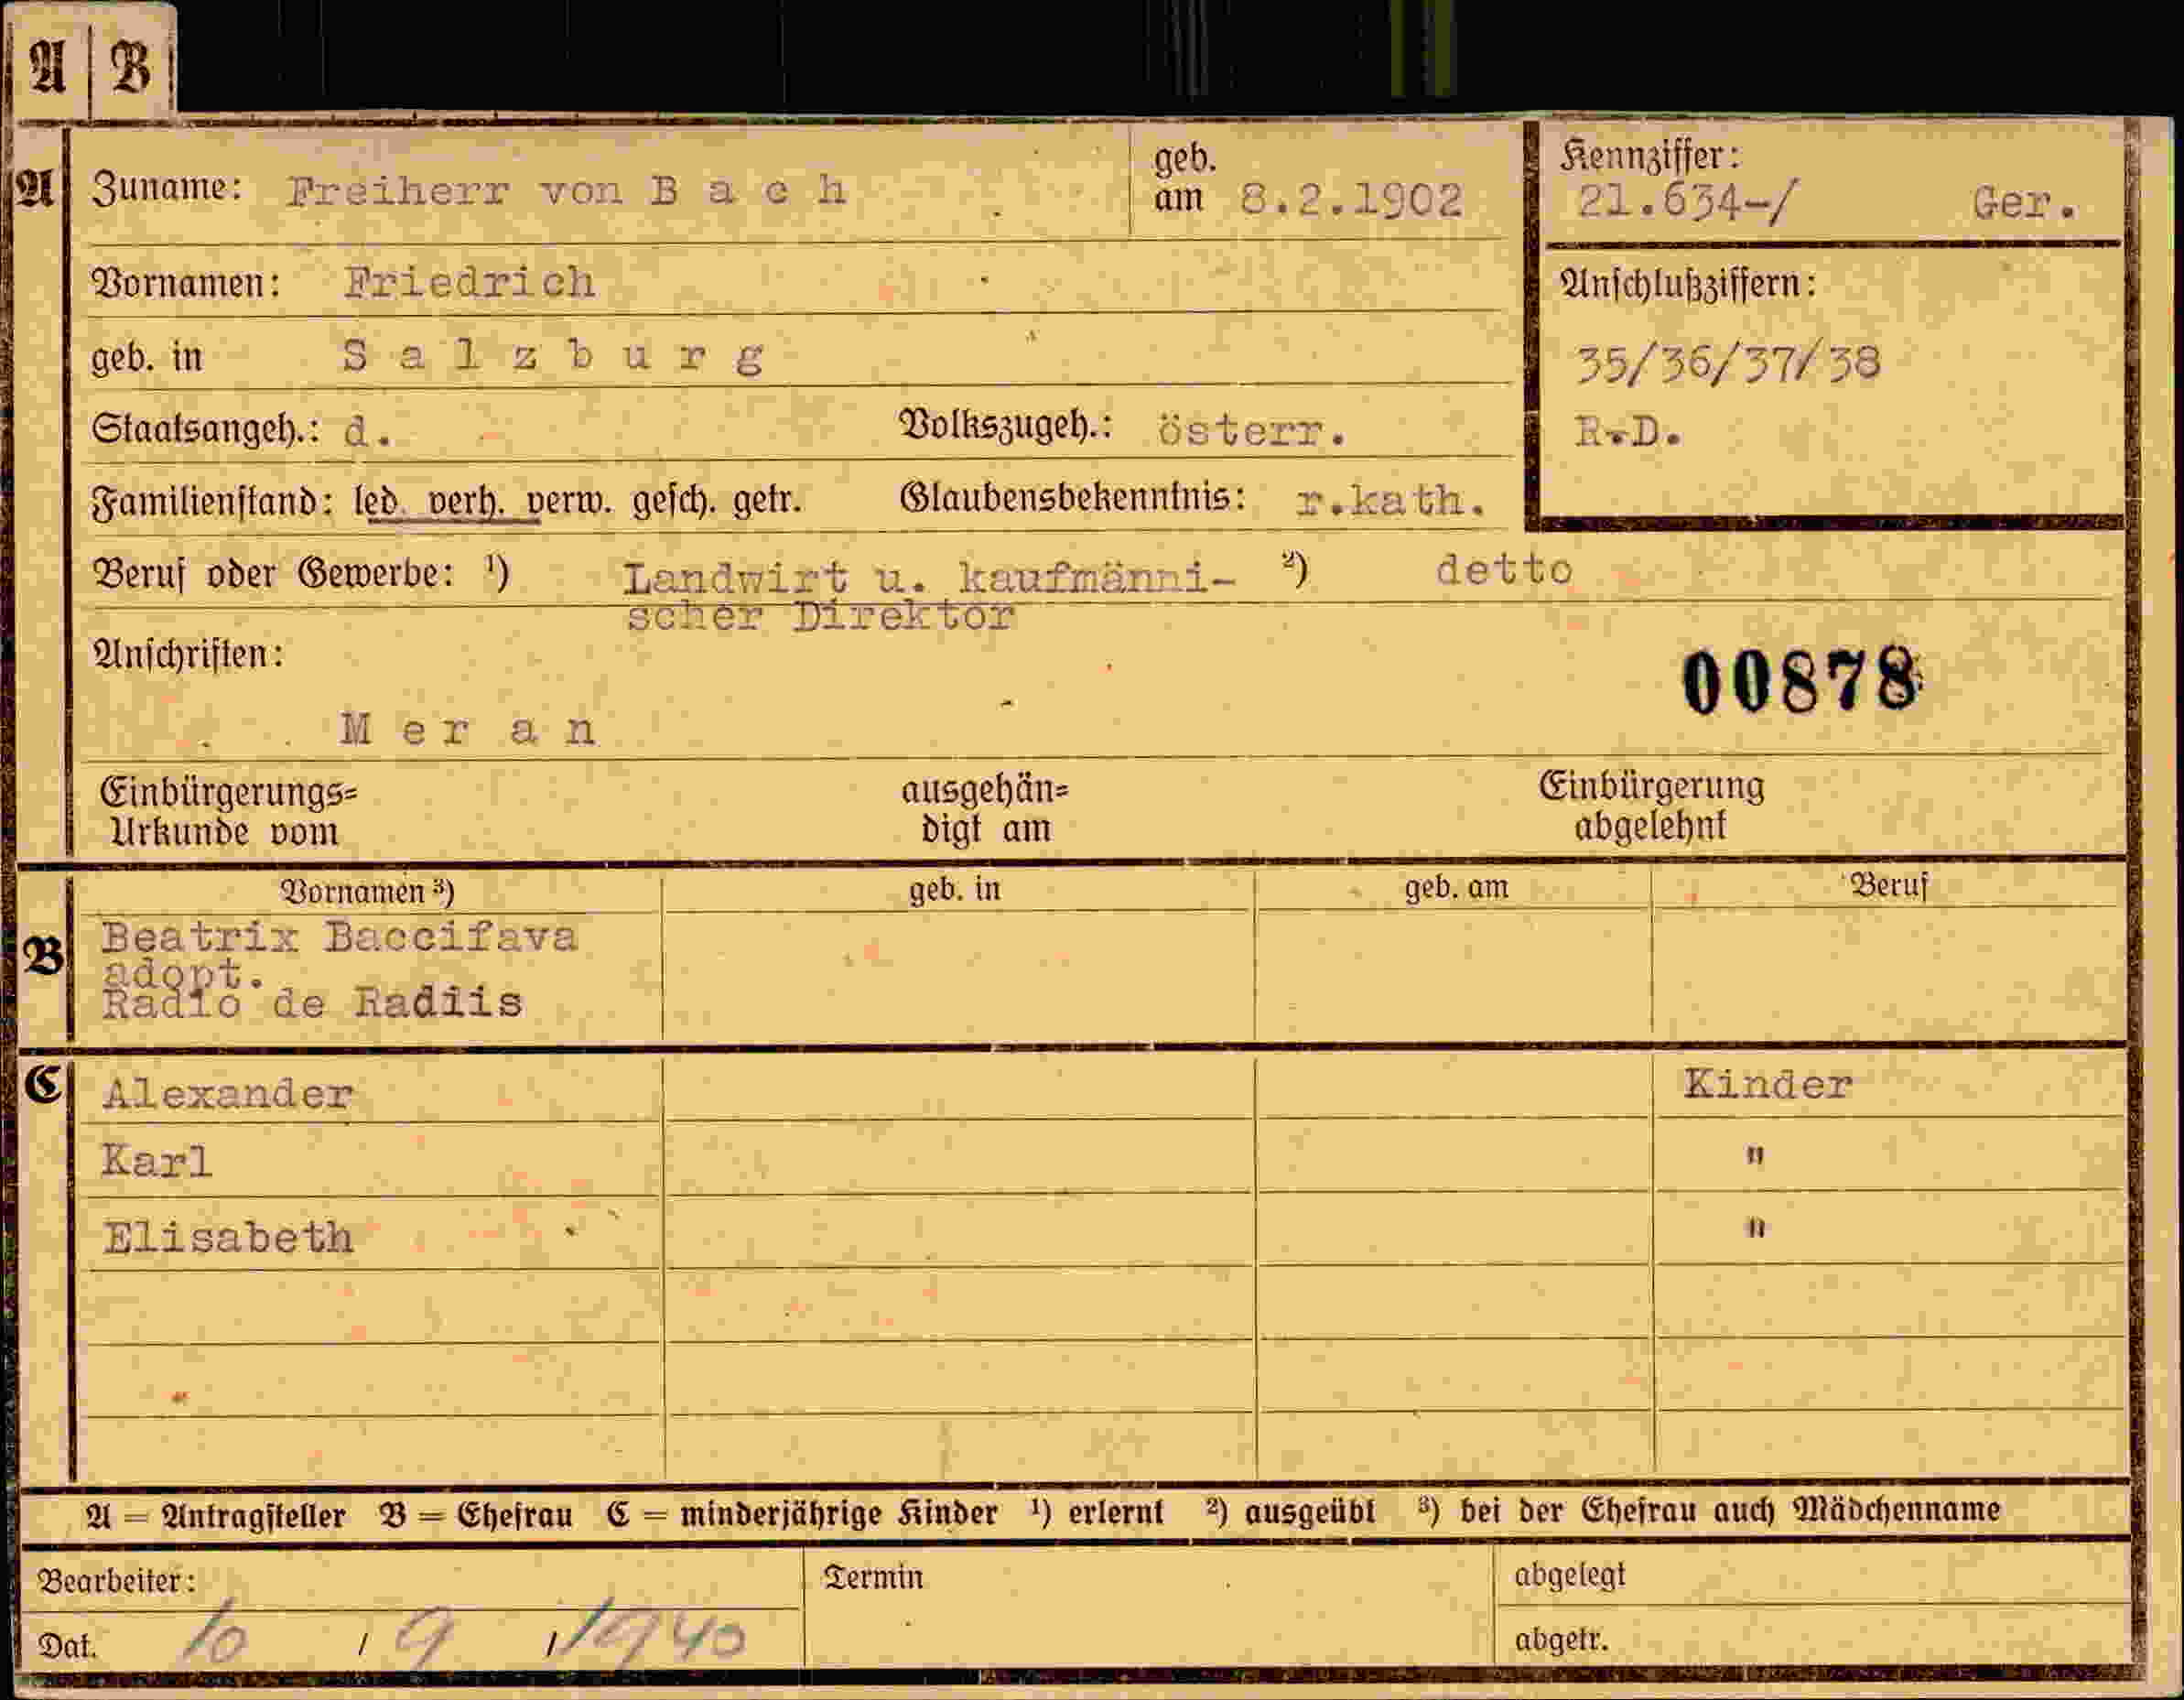 A B
A
Zuname: Freiherr von B a c h
geb.
am 8.2.1902
Kennziffer:
21.634-/ Ger.
Vornamen: Friedrich
Anschlußziffern:
geb. in S a l z b u r g
35/36/37/38
Staatsangeh.: d. Volkszugeh.: österr.
R.D.
Familienstand: led. verh. verw. gesch. getr. Glaubensbekenntnis: r.kath.
Beruf oder Gewerbe: ¹) Landwirt u. kaufmänni- ²) detto
scher Direktor
Anschriften:
00878
M e r a n
Einbürgerungs=
Urkunde vom
ausgehän=
digt am
Einbürgerung
abgelehnt
Vornamen ³) geb. in geb. am Beruf
B
Beatrix Baccifava
adopt.
Radio de Radiis
C
Alexander Kinder
Karl "
Elisabeth "
A = Antragsteller B = Ehefrau C = minderjährige Kinder ¹) erlernt ²) ausgeübt ³) bei der Ehefrau auch Mädchenname
Bearbeiter: Termin abgelegt
Dat. 10 / 9 / 1940
abgetr.